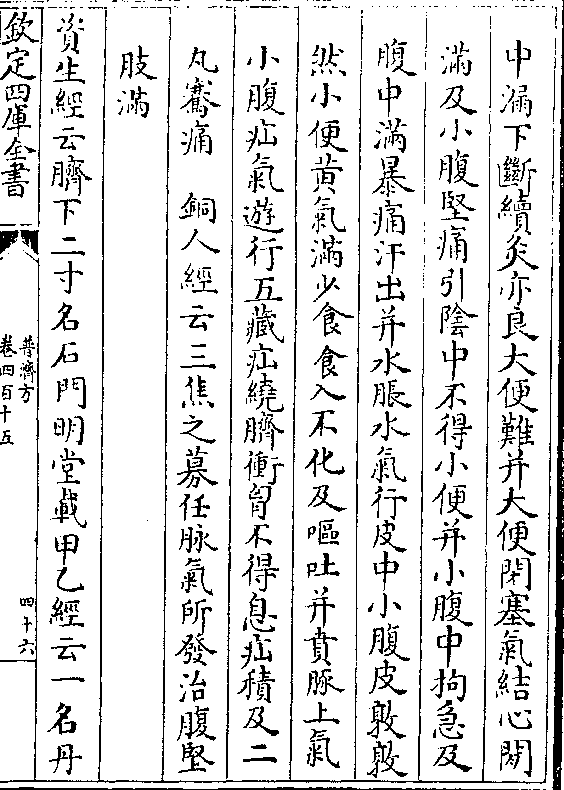 中漏下斷續灸亦良大便難并大便閉塞氣結心閒
滿及小腹堅痛引陰中不得小便并小腹中拘急及
腹中滿暴痛汗出并水脹水氣行皮中小腹皮敦敦
然小便黃氣滿少食食入不化及嘔吐并賁豚上氣
小腹疝氣遊行五藏疝繞臍衝胷不得息疝積及二
丸騫痛　銅人經云三焦之募任脉氣所發治腹堅
肢滿
資生經云臍下二寸名石門明堂載甲乙經云一名丹
欽定四庫全書
普濟方
卷四百十五
四十六